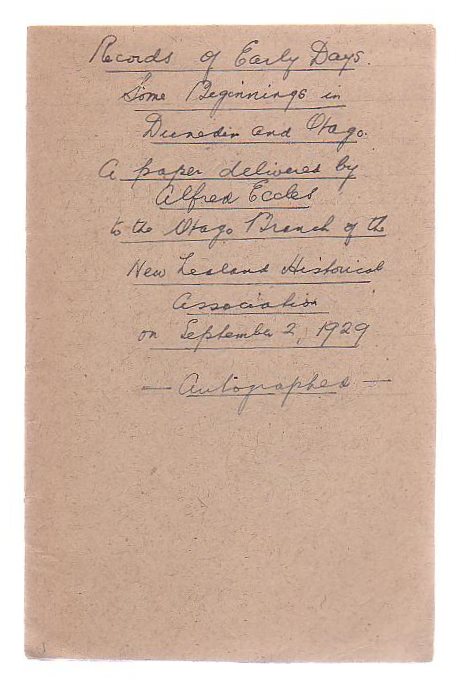 Records of Early Days.
Some Beginnings in
Dunedin and Otago.
A paper delivered by
Alfred Eccles
to the Otago Branch of the
New Zealand Historical
Association
on September 2, 1929
— Autographed —